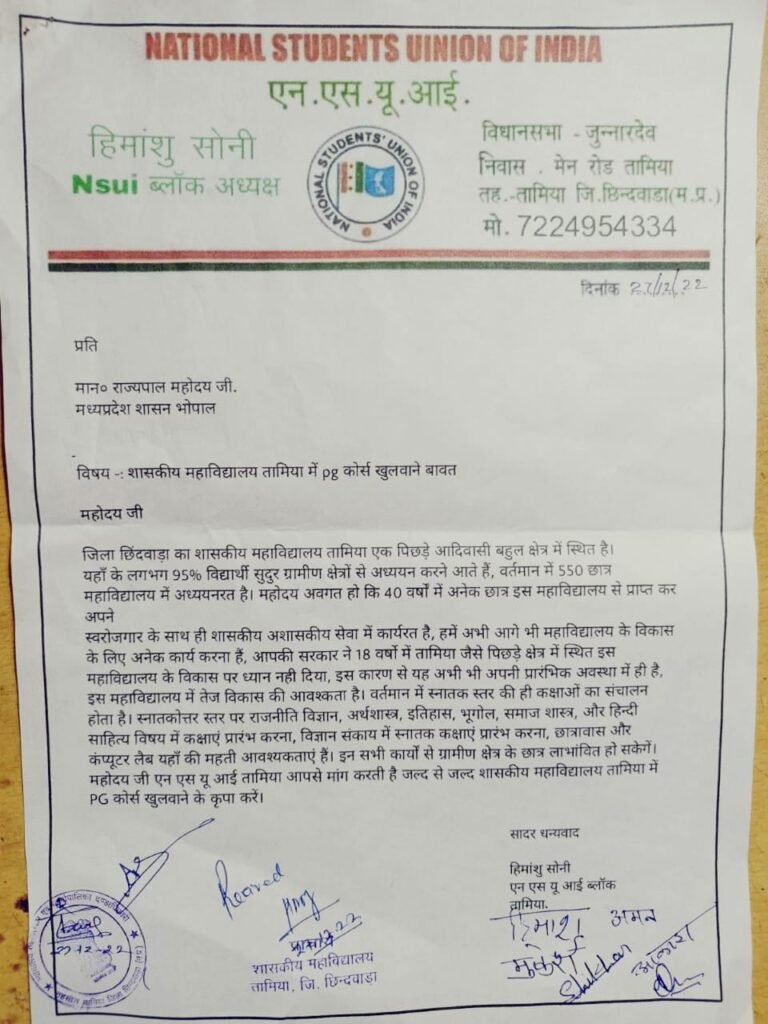 NATIONAL STUDENTS UINION OF INDIA
एन.एस.यू.आई.
हिमांशु सोनी
Nsui ब्लॉक अध्यक्ष
NATIONAL STUDENTS' UNION OF INDIA
विधानसभा - जुन्नारदेव
निवास . मेन रोड तामिया
तह.-तामिया जि.छिन्दवाडा(म.प्र.)
मो. 7224954334
दिनांक 27/12/22
प्रति
मान० राज्यपाल महोदय जी.
मध्यप्रदेश शासन भोपाल
विषय -: शासकीय महाविद्यालय तामिया में pg कोर्स खुलवाने बावत
महोदय जी
जिला छिंदवाड़ा का शासकीय महाविद्यालय तामिया एक पिछड़े आदिवासी बहुल क्षेत्र में स्थित है।
यहाँ के लगभग 95% विद्यार्थी सुदुर ग्रामीण क्षेत्रों से अध्ययन करने आते हैं, वर्तमान में 550 छात्र
महाविद्यालय में अध्ययनरत है। महोदय अवगत हो कि 40 वर्षो में अनेक छात्र इस महाविद्यालय से प्राप्त कर
अपने
स्वरोजगार के साथ ही शासकीय अशासकीय सेवा में कार्यरत है, हमें अभी आगे भी महाविद्यालय के विकास
के लिए अनेक कार्य करना हैं, आपकी सरकार ने 18 वर्षो में तामिया जैसे पिछड़े क्षेत्र में स्थित इस
महाविद्यालय के विकास पर ध्यान नही दिया, इस कारण से यह अभी भी अपनी प्रारंभिक अवस्था में ही है,
इस महाविद्यालय में तेज विकास की आवश्कता है। वर्तमान में स्नातक स्तर की ही कक्षाओं का संचालन
होता है। स्नातकोत्तर स्तर पर राजनीति विज्ञान, अर्थशास्त्र, इतिहास, भूगोल, समाज शास्त्र, और हिन्दी
साहित्य विषय में कक्षाएं प्रारंभ करना, विज्ञान संकाय में स्नातक कक्षाएं प्रारंभ करना, छात्रावास और
कंप्यूटर लैब यहाँ की महती आवश्यकताएं हैं। इन सभी कार्यो से ग्रामीण क्षेत्र के छात्र लाभांवित हो सकेगें।
महोदय जी एन एस यू आई तामिया आपसे मांग करती है जल्द से जल्द शासकीय महाविद्यालय तामिया में
PG कोर्स खुलवाने के कृपा करें।
सादर धन्यवाद
हिमांशु सोनी
एन एस यू आई ब्लॉक
तामिया.
हिमांशु अमन
मुकेश Shikhar आकाश
27-12-22
शासकीय महाविद्यालय
तामिया, जि. छिन्दवाड़ा